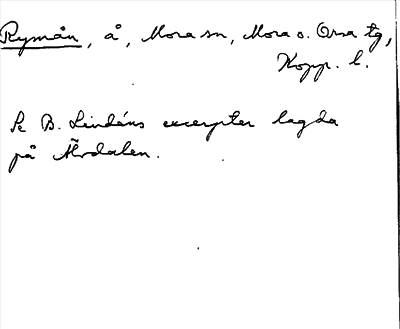 Rymån, å, Mora sn, Mora o. Orsa tg,
Kopp. l.
Se B. Lindéns excerpter lagda
på Älvdalen.